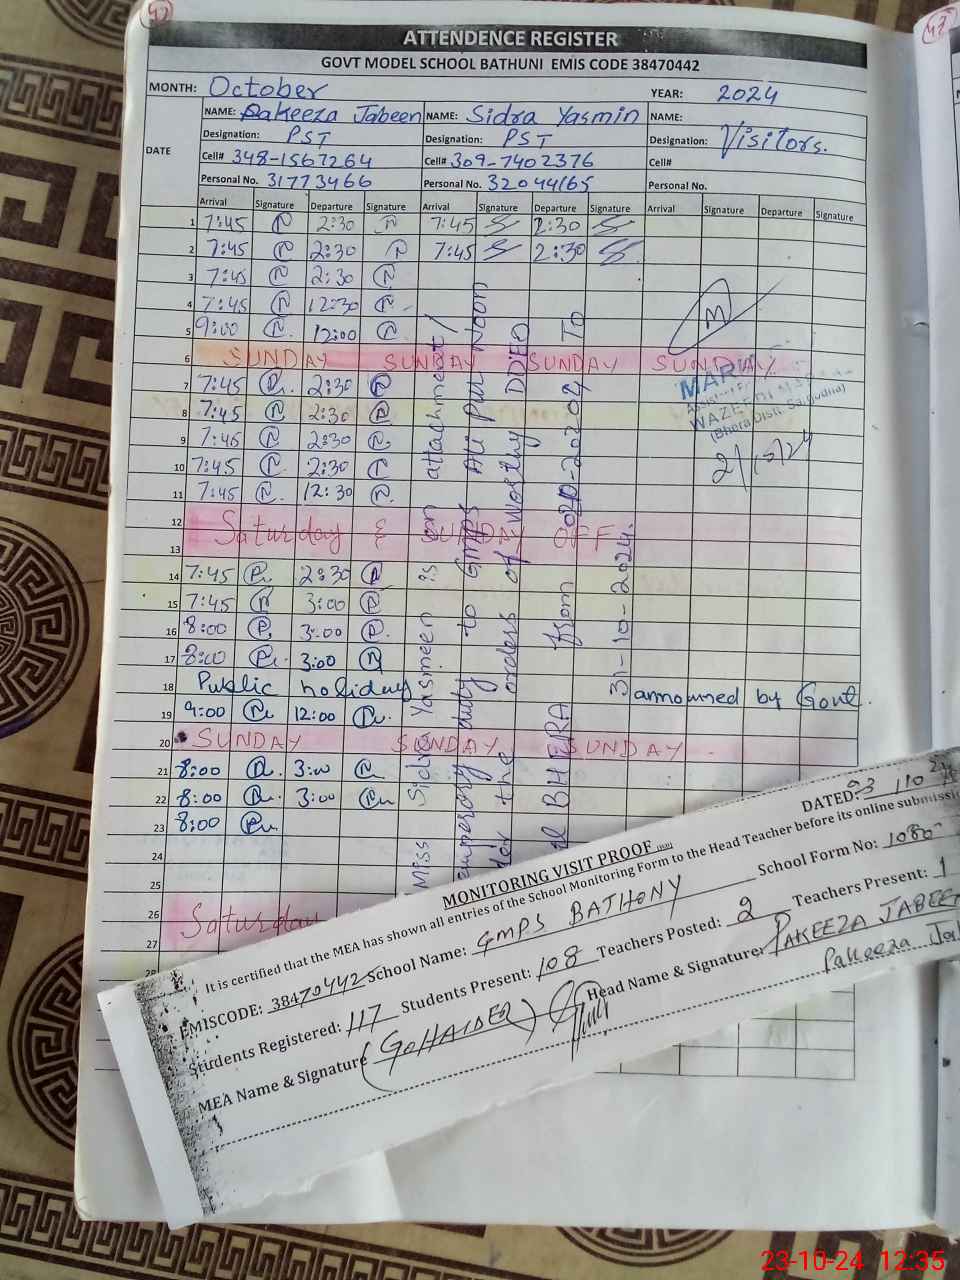 47
47
ATTENDENCE REGISTER
GOVT MODEL SCHOOL BATHUNI EMIS CODE 38470442
MONTH: October YEAR: 2024
DATE
NAME: Pakeeza Jabeen NAME: Sidra Yasmin NAME:
Designation: PST Designation: PST Designation: Visitors.
Cell# 348-1567264 Cell# 309-7402376 Cell#
Personal No. 31773466 Personal No. 32044165 Personal No.
Arrival Signature Departure Signature Arrival Signature Departure Signature Arrival Signature Departure Signature
1 7:45 2:30 7:45 2:30
2 7:45 2:30 7:45 2:30
3 7:45 2:30
4 7:45 12:30
5 9:00 12:00
6 SUNDAY SUNDAY SUNDAY SUNDAY
7 7:45 2:30
8 7:45 2:30
9 7:45 2:30
10 7:45 2:30
11 7:45 12:30
12 Saturday & SUNDAY OFF
13
14 7:45 2:30
15 7:45 3:00
16 8:00 3:00
17 8:00 3:00
18 Public holiday announed by Govt.
19 9:00 12:00
20 SUNDAY SUNDAY SUNDAY
21 8:00 3:00
22 8:00 3:00
23 8:00
24
25
26 Saturday
27
28
Miss Sidra Yasmeen is on attachment/
emporary duty to GMPS Ali Pur Noon
der the orders of Worthy DDEO
BHERA from 02-10-2024 To
31-10-2024.
(Bhera Distt. Sargodha)
2/10/24
MONITORING VISIT PROOF
DATED: 23/10/24
It is certified that the MEA has shown all entries of the School Monitoring Form to the Head Teacher before its online submissio
EMISCODE: 38470442 School Name: GMPS BATHONY School Form No:
Students Registered: 117 Students Present: 108 Teachers Posted: 2 Teachers Present: 1
MEA Name & Signature (G. HAIDER) Head Name & Signature: PAKEEZA JABEEN
Pakeeza Jab
23-10-24 12:35